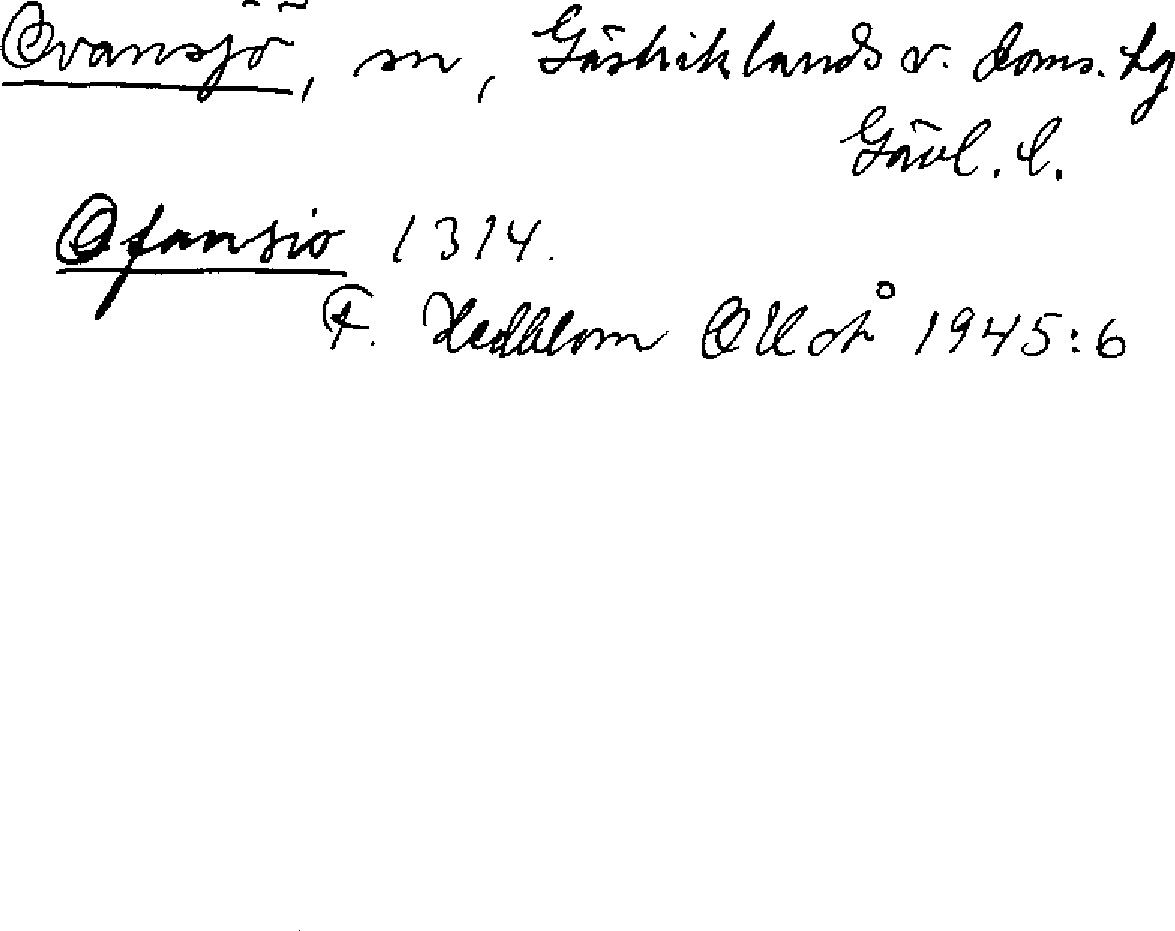 Ovansjö, sn, Gästriklands v. doms. tg
Gävl. l.
Ofansio 1314.
F. Hedblom OUoÅ 1945:6